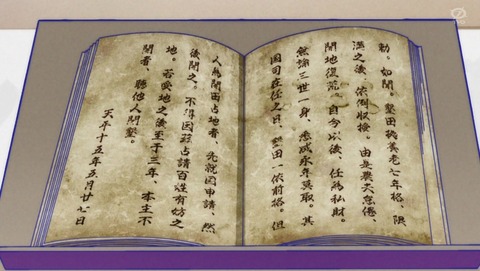 勅。如聞。墾田拠養老七年格、限
満之後、依例収授。由是農夫怠倦、
開地復荒。自今以後、任為私財。
無論三世一身、悉咸永年莫取。其
国司在任之日、墾田一依前格。但
人為開田占地者、先就国申請、然
後開之。不得因茲占請百姓有妨之
地。若受地之後至于三年、本主不
開者、聴他人開墾。
天平十五年五月廿七日